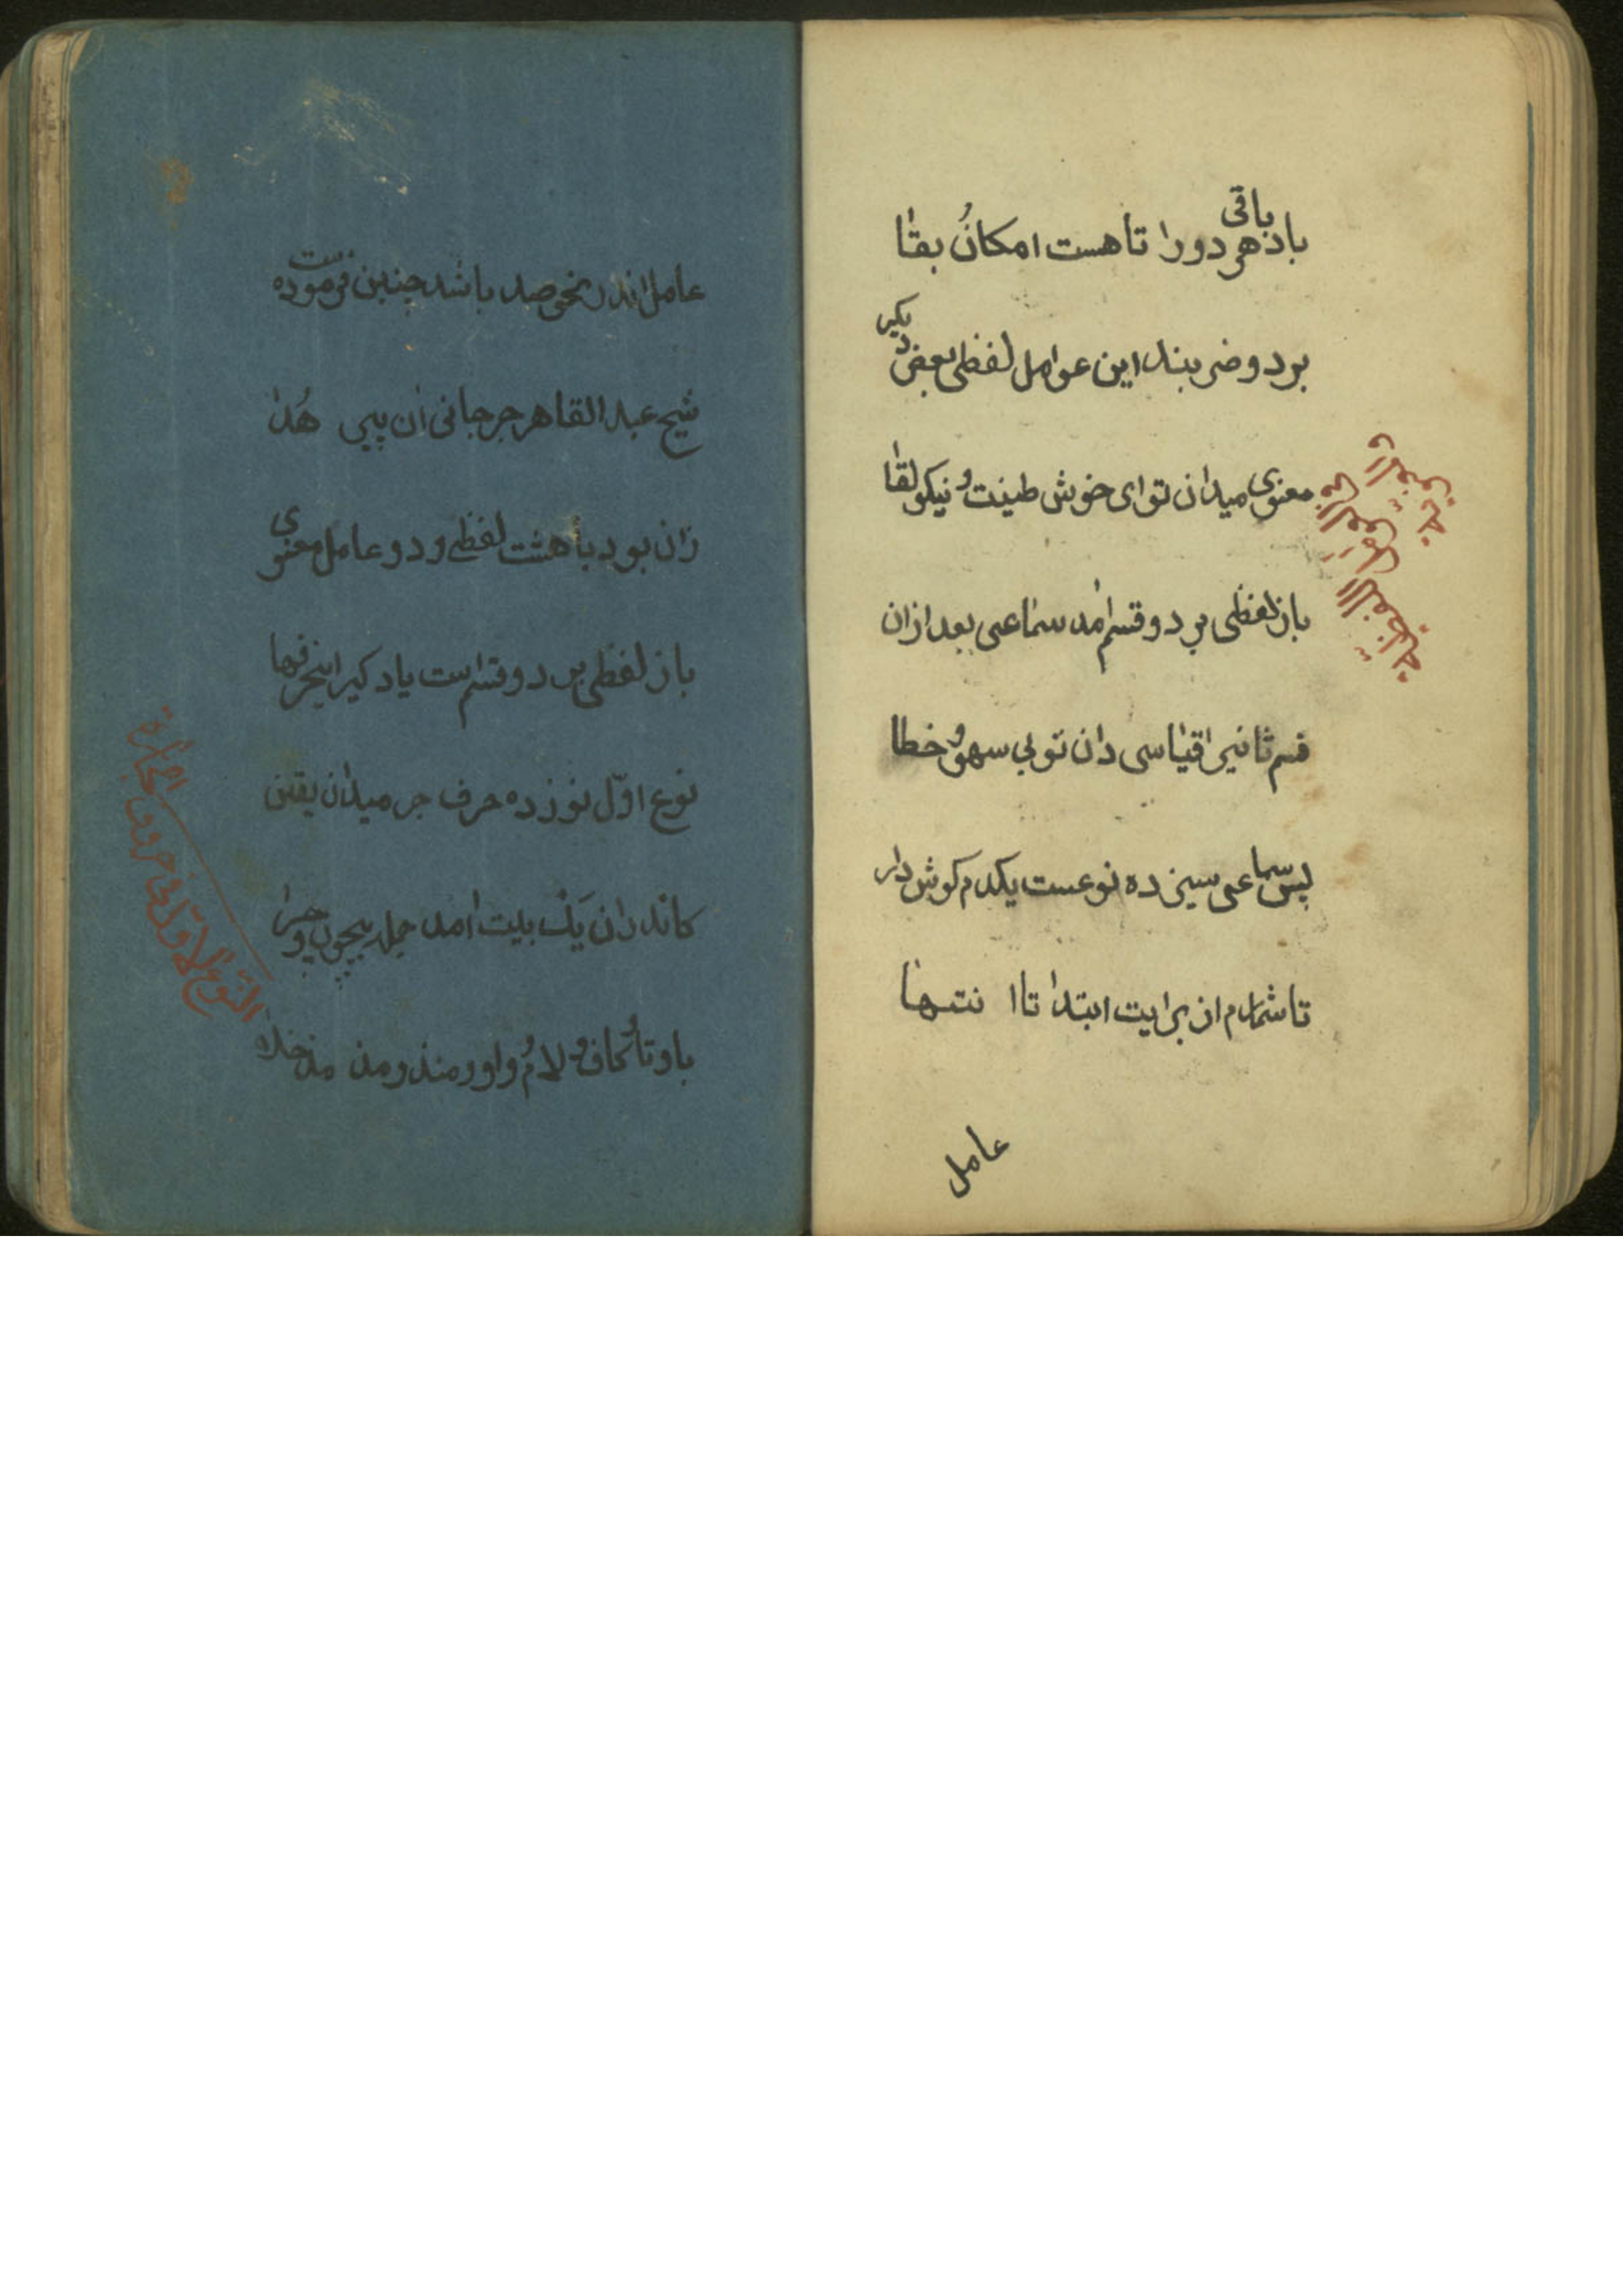 باد باقی هر دو را تا هست امکان بقا
بر دو ضربند این عوامل لفظی بعض دیگر
معنوی میدان تو ای خوش طینت و نیکو لقا
باز لفظی بر دو قسم امد سماعی بعد ازان
قسم ثانی را قیاسی دان تو بی سهو و خطا
پس سماعی سیزده نوعست یکدم کوش دار
تا شمارم از برایت ابتدا تا انتها
عامل
عامل اندر نحو صد باشد چنین فرموده است
شیخ عبد القاهر جرجانی ان پیر هدا
زان بود با هشت لفظی و دو عامل معنوی
باز لفظی بر دو قسم است یاد کیر این حرفها
نوع اول نوزده حرف جر میدان یقین
کاندران یک بیت امد جمله بیچون و چرا
با و تا و کاف و لام و واو و منذ و مذ خلا
النوع الاول فی حروف الجارة